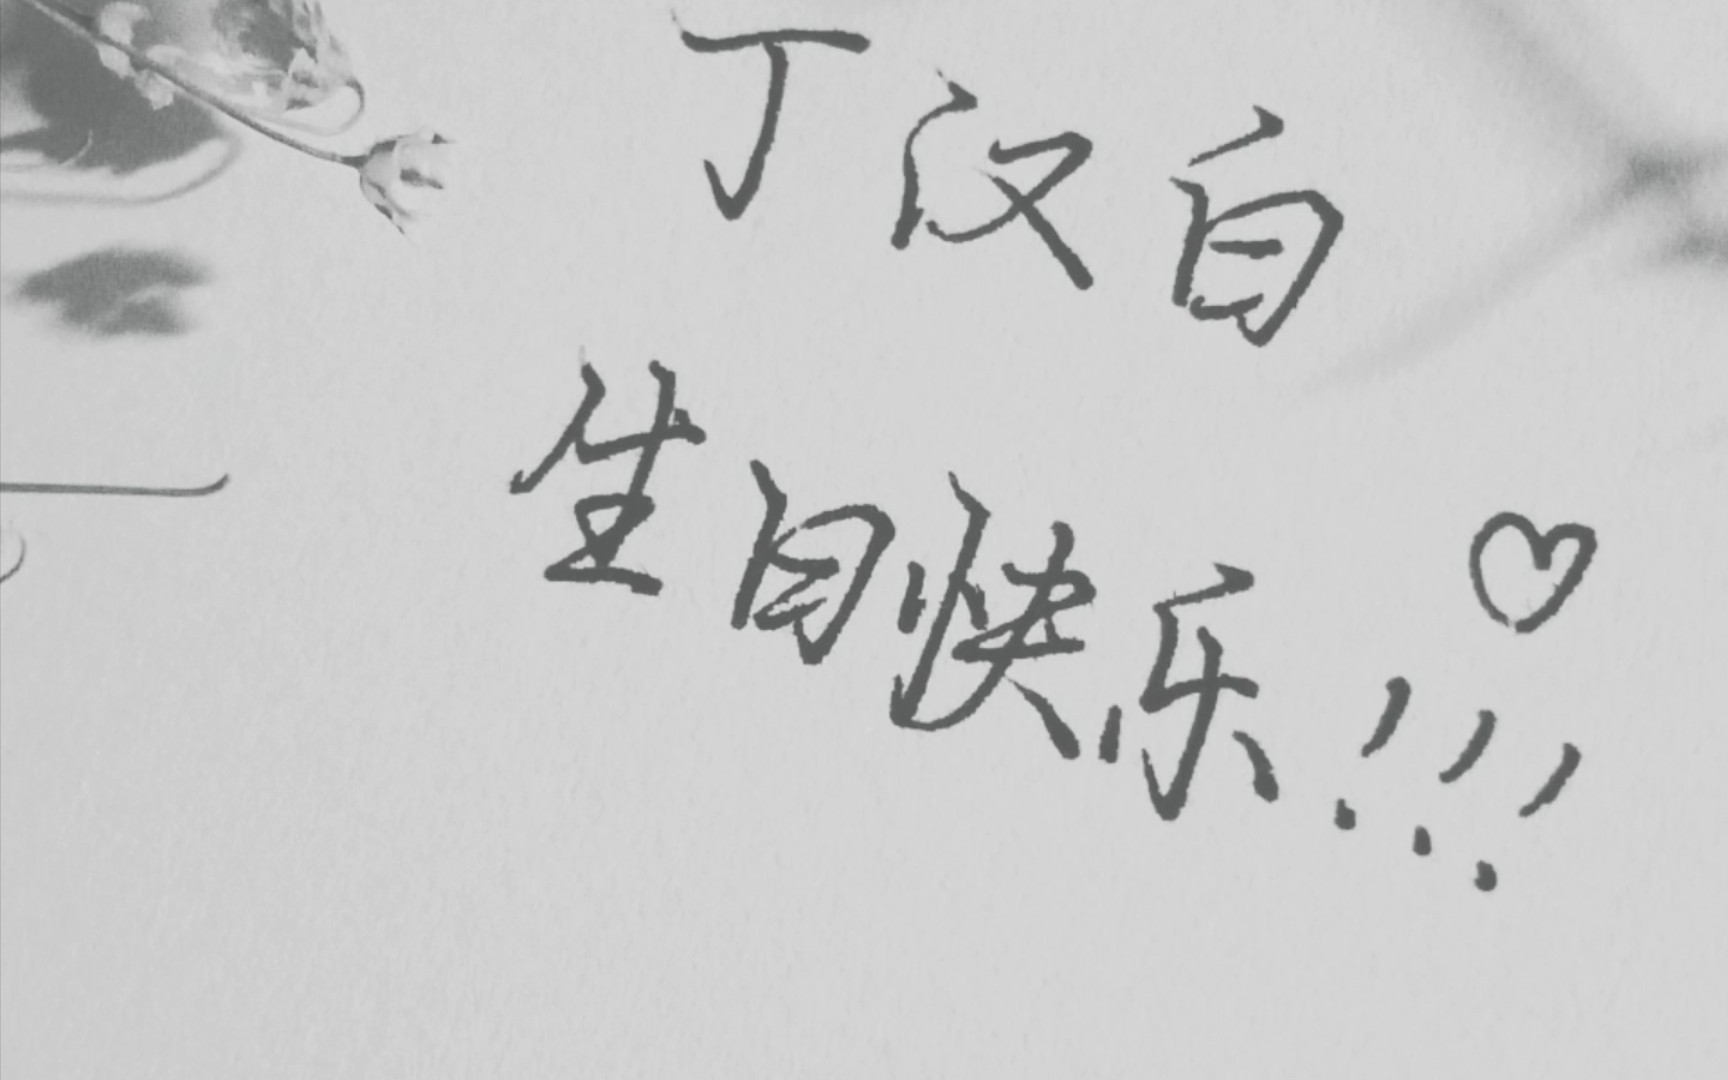 丁汉白
生日快乐!!! ♡